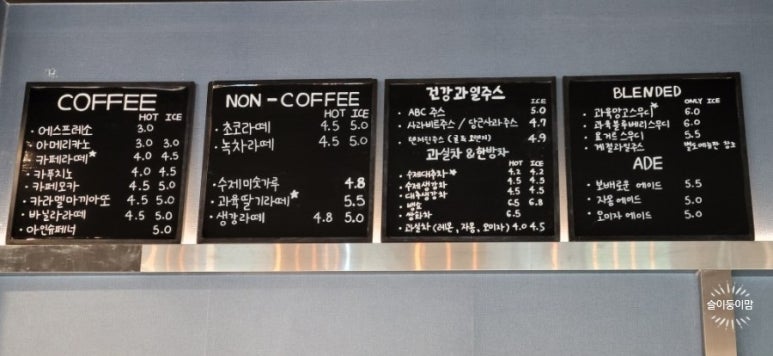 COFFEE
HOT ICE
· 에스프레소 3.0
· 아메리카노 3.0 3.0
· 카페라떼★ 4.0 4.5
· 카푸치노 4.0 4.5
· 카페모카 4.5 5.0
· 카라멜마끼아또 4.5 5.0
· 바닐라라떼 4.5 5.0
· 아인슈페너 5.0
NON-COFFEE
HOT ICE
· 초코라떼 4.5 5.0
· 녹차라떼 4.5 5.0
· 수제미숫가루 4.8
· 과육딸기라떼★ 5.5
· 생강라떼 4.8 5.0
건강과일주스
ICE
· ABC 주스 5.0
· 사과비트주스 / 당근사과주스 4.7
4.9
과실차 & 한방차
HOT ICE
· 수제대추차★ 4.2 4.2
· 수제생강차 4.5 4.5
· 대추생강차 4.5 4.5
6.5 6.8
· 쌍화차 6.5
· 과실차 (레몬, 자몽, 오미자) 4.0 4.5
BLENDED
ONLY ICE
· 과육망고스무디★ 6.0
· 과육블루베리스무디 6.0
· 요거트스무디 5.5
· 계절과일주스 별도메뉴판 참고
ADE
· 보배로운 에이드 5.5
· 자몽 에이드 5.0
· 오미자 에이드 5.0
슬이둥이맘